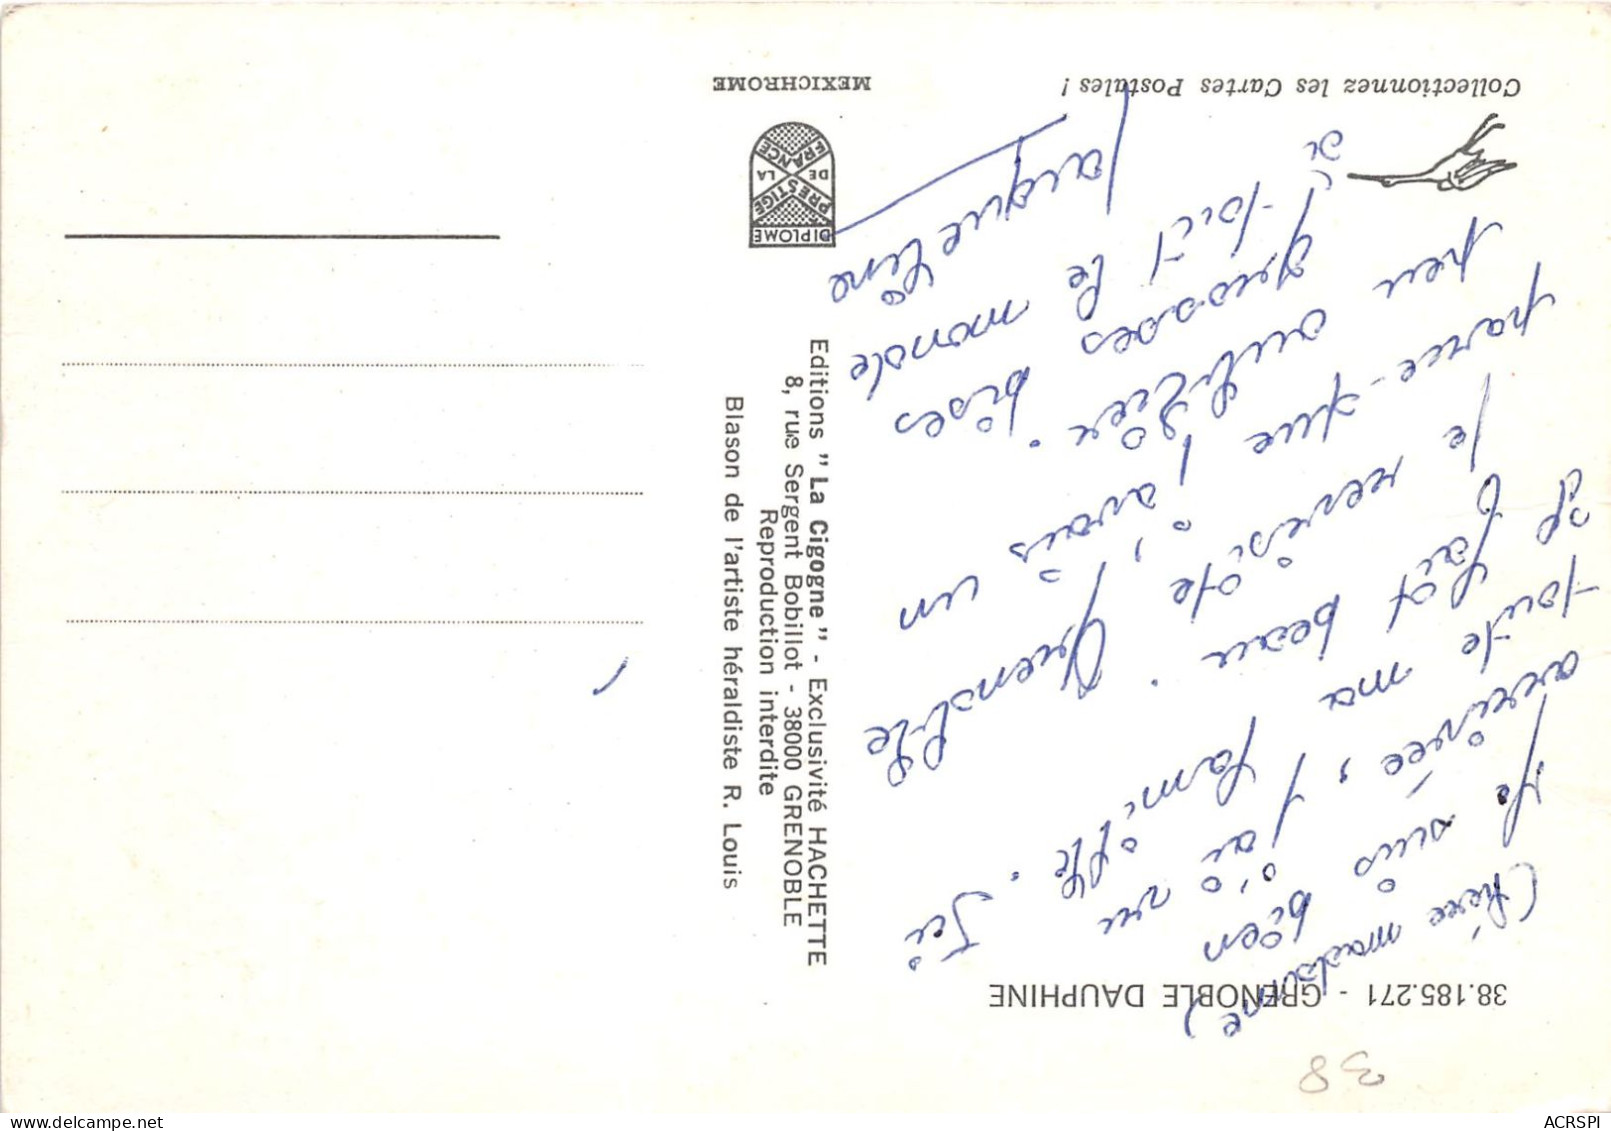 38.185.271 - GRENOBLE DAUPHINE
Chère madame
Je suis bien
arrivée, j'ai vu
toute ma famille. Ici
il fait beau. Grenoble
je revisite
parce-que j'avais un
peu oublier.
grosses bises
à tout le monde
Jaqueline
Collectionnez les Cartes Postales !
MEXICHROME
DIPLOME
PRESTIGE
DE LA
FRANCE
Editions " La Cigogne " - Exclusivité HACHETTE
8, rue Sergent Bobillot - 38000 GRENOBLE
Reproduction interdite
Blason de l'artiste héraldiste R. Louis
38
ACRSPI